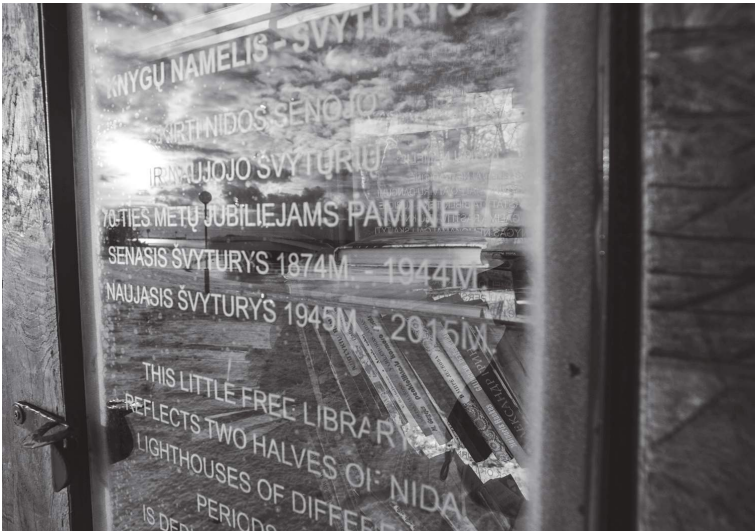 KNYGŲ NAMELIS - ŠVYTURYS
SKIRTI NIDOS SENOJO
IR NAUJOJO ŠVYTURIŲ
70-TIES METŲ JUBILIEJAMS PAMINĖ
SENASIS ŠVYTURYS 1874M. - 1944M.
NAUJASIS ŠVYTURYS 1945M. - 2015M.
THIS LITTLE FREE LIBRARY
REFLECTS TWO HALVES OF NIDA
LIGHTHOUSES OF DIFFERE
PERIODS
IS DED